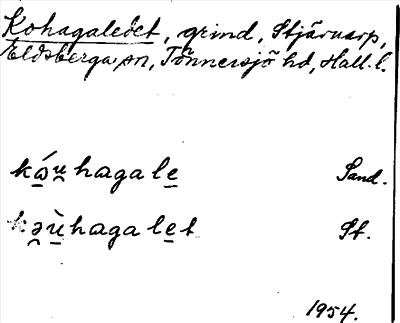 Kohagaledet, grind, Stjärnarp,
Eldsberga sn, Tönnersjö hd, Hall. l.
kǝ̱́ṷhagale̱ Sand.
kə̯ṳ̀hagale̱t St.
1954.